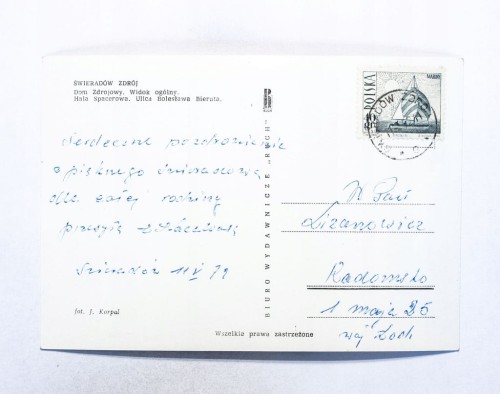 ŚWIERADÓW ZDRÓJ
Dom Zdrojowy. Widok ogólny.
Hala Spacerowa. Ulica Bolesława Bieruta.
Serdeczne pozdrowienia
z pięknego Świeradowa
dla całej rodziny
przesyła
Świeradów 11 V
fot. J. Korpal
BIURO WYDAWNICZE „RUCH"
Wszelkie prawa zastrzeżone
POLSKA
ŚWIERADÓW ZDR
W Pań
Lizanowicz
Radomsko
1 maja 25
woj Łódź